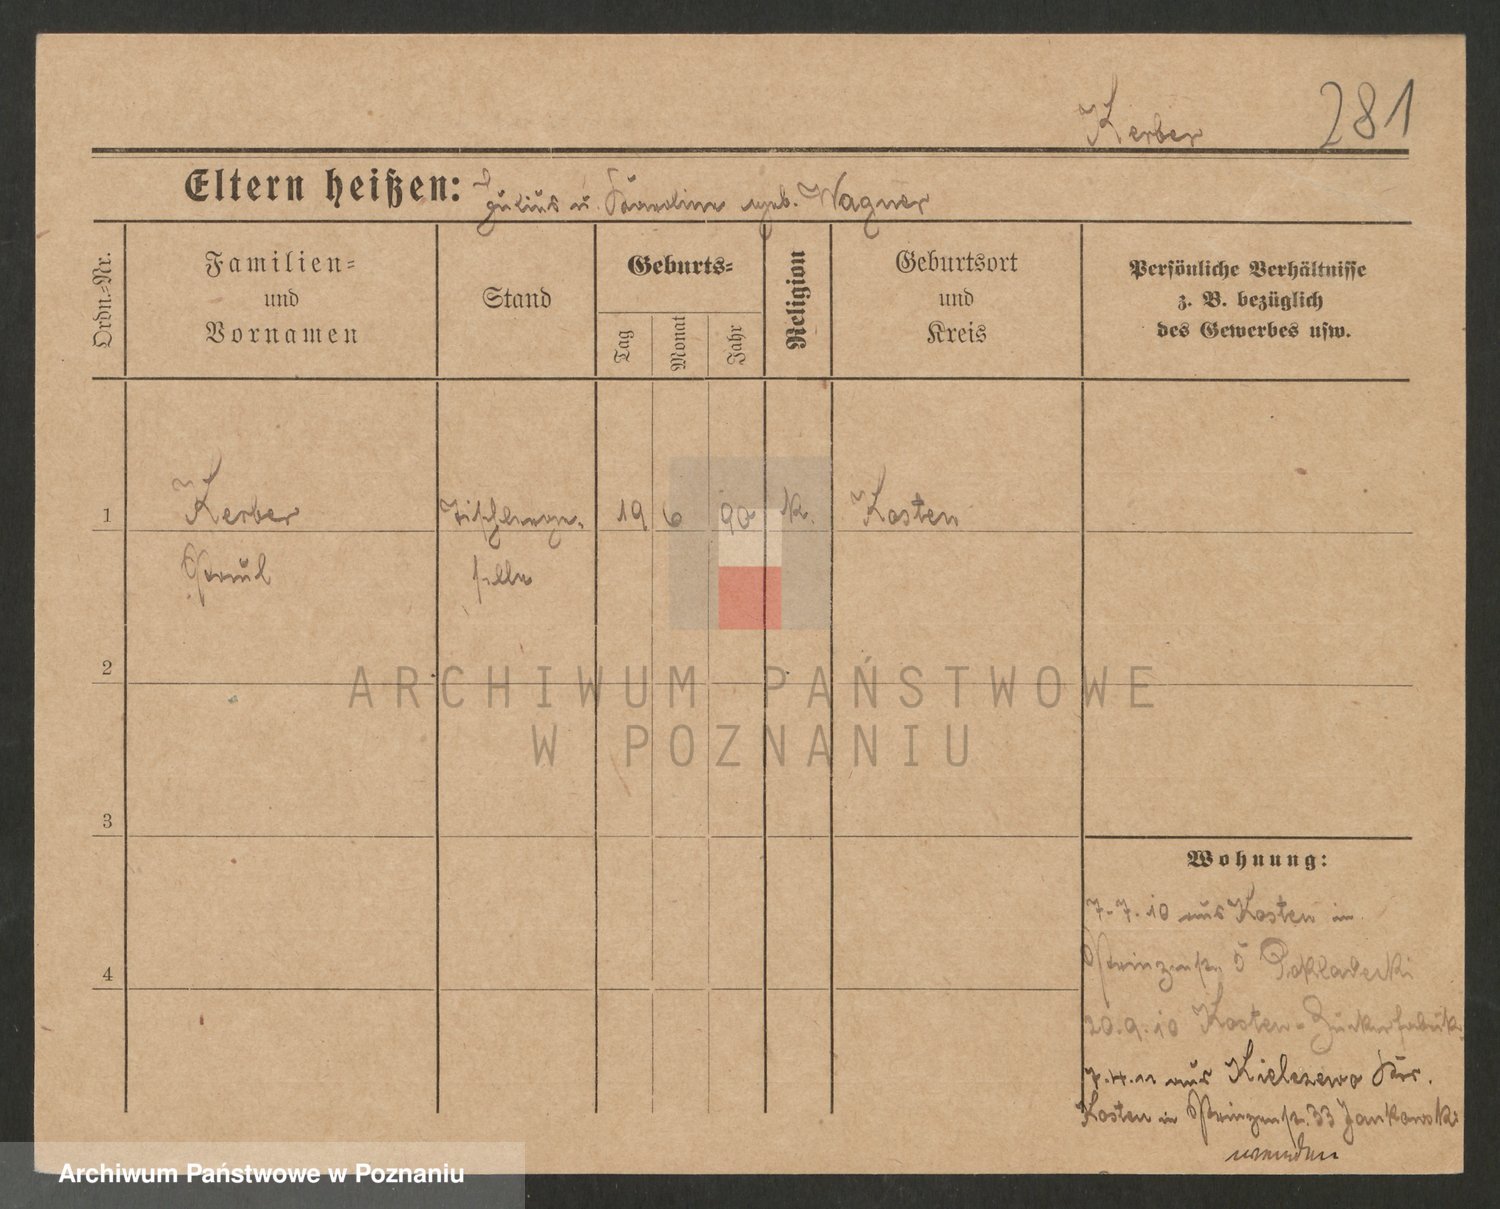 281
Kerber
Eltern heißen: Julius u. Karoline geb. Wagner
Ordn.=Nr.
Familien=
und
Vornamen
Stand
Geburts=
Tag
Monat
Jahr
Religion
Geburtsort
und
Kreis
Persönliche Verhältnisse
z. B. bezüglich
des Gewerbes usw.
1 Kerber Tischlerge- 19 6 90 k. Kosten
Paul selle
2
ARCHIWUM PAŃSTWOWE
W POZNANIU
3
4
Wohnung:
7.7.10 aus Kosten in
Prinzenstr. 5 Pokladecki
20.9.10 Kosten-Zuckerfabrik
7.4.11 aus Kielczewo Krs.
Kosten in Prinzenstr. 33 Jankowski
wenden
Archiwum Państwowe w Poznaniu